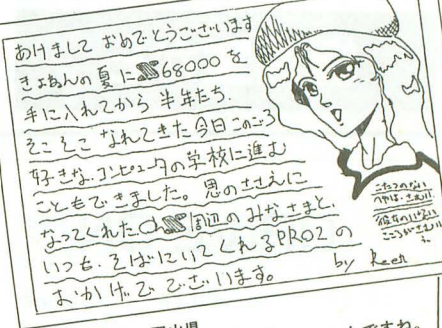 あけまして おめでとうございます
きょねんの夏に X68000を
手に入れてから 半年たち、
そこそこ なれてきた今日このごろ
好きな、コンピュータの学校に進む
こともできました。思のささえに
なってくれたOh!X周辺のみなさまと、
いつも、そばにいてくれるPRO2の
おかげでございます。
こたつのない
へやは、さむい
彼女のいない
こころがさむい
by Reen
ですね。